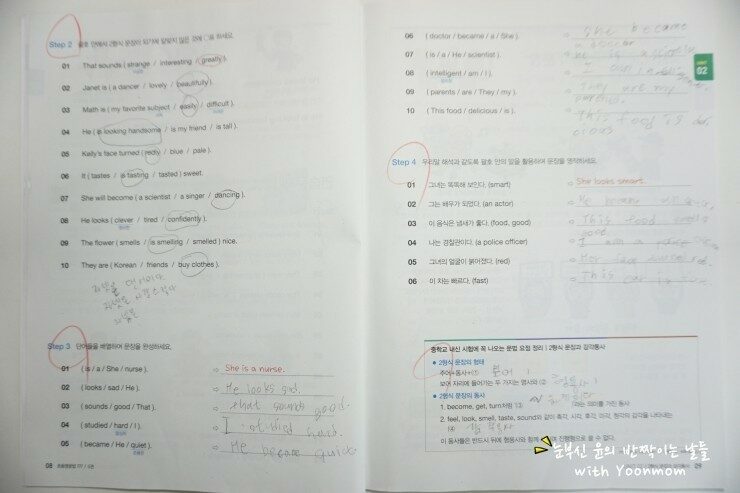 Step 2 괄호 안에서 2형식 문장이 되기에 알맞지 않은 것에 ○표 하세요.
01 That sounds ( strange / interesting / greatly ).
02 Janet is ( a dancer / lovely / beautifully ).
03 Math is ( my favorite subject / easily / difficult ).
04 He ( is looking handsome / is my friend / is tall ).
05 Kelly's face turned ( redly / blue / pale ).
06 It ( tastes / is tasting / tasted ) sweet.
07 She will become ( a scientist / a singer / dancing ).
08 He looks ( clever / tired / confidently ).
09 The flower ( smells / is smelling / smelled ) nice.
10 They are ( Korean / friends / buy clothes ).
Step 3 단어들을 배열하여 문장을 완성하세요.
01 ( is / a / She / nurse ). She is a nurse.
02 ( looks / sad / He ). He looks sad.
03 ( sounds / good / That ). that sounds good.
04 ( studied / hard / I ). I studied hard.
05 ( became / He / quiet ). He became
08
06 ( doctor / became / a / She ). She became
a doctor
07 ( is / a / He / scientist ). He is a
08 ( intelligent / am / I ). I am
09 ( parents / are / They / my ). They are my
parents.
10 ( This food / delicious / is ). This food is
Step 4 우리말 해석과 같도록 괄호 안의 말을 활용하여 문장을 영작하세요.
01 그녀는 똑똑해 보인다. (smart) She looks smart.
02 그는 배우가 되었다. (an actor) He
03 이 음식은 냄새가 좋다. (food, good) This food
good
04 나는 경찰관이다. (a police officer) I am a police
05 그녀의 얼굴이 붉어졌다. (red) Her face turned red.
06 이 차는 빠르다. (fast) This car is
UNIT
02
중학교 내신 시험에 꼭 나오는 문법 요점 정리 | 2형식 문장과 감각동사
● 2형식 문장의 형태
주어+동사+① 보어
보어 자리에 들어가는 두 가지는 명사와 ② 형용사
● 2형식 문장의 동사
1. become, get, turn처럼 ③ 라는 의미를 가진 동사
2. feel, look, smell, taste, sound와 같이 촉각, 시각, 후각, 미각, 청각의 감각을 나타내는
④
이 동사들은 반드시 뒤에 형용사와 함께 진행형으로 쓸 수 없다.
눈부신 윤의 반짝이는 날들
with Yoonmom
29